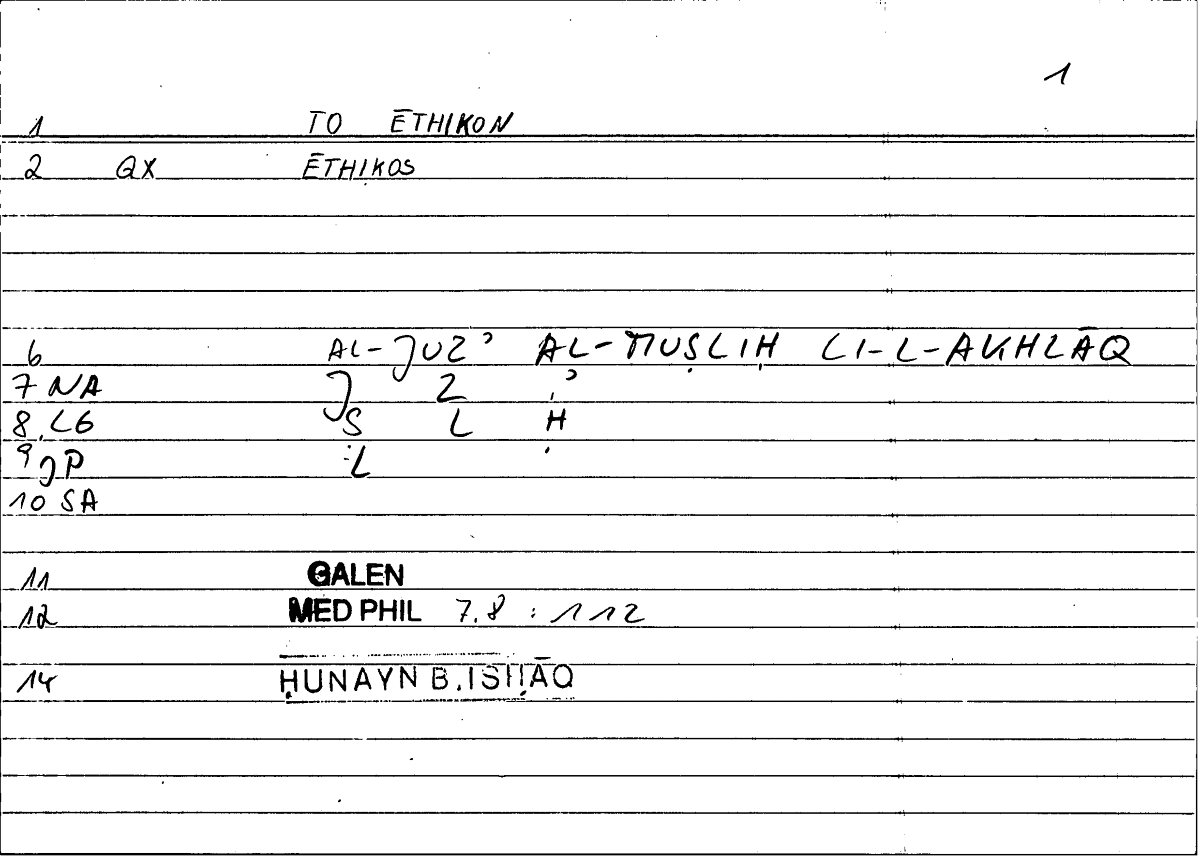 1
1 TO ĒTHIKON
2 QX ĒTHIKOS
6 AL-JUZʾ AL-MUṢLIḤ LI-L-AKHLĀQ
7 NA J Z ʾ
8 LG Ṣ L Ḥ
9 JP L
10 SA
11 GALEN
12 MED PHIL 7.8 : 112
14 ḤUNAYN B. ISḤĀQ